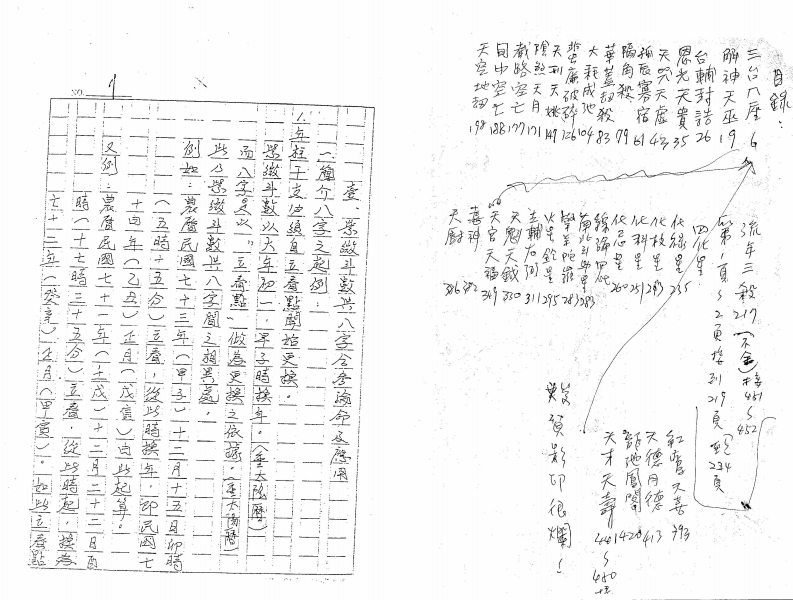 目錄:
三台八座 6
解神天巫 19
台輔封誥 26
恩光天貴 35
天哭天虛 43
孤辰寡宿 61
隔角殺 79
華蓋劫殺 83
大耗咸池 104
蜚廉破碎 126
天刑天姚 149
陰煞天月 171
截路空亡 177
旬中空亡 188
天空地劫 198
流年三殺 217 (不全) 接 451~452
第1頁~2頁接到219頁 234頁
四化星
化祿星 235
化權星
化科星 251
化忌星 260
南北斗星 283
擎羊陀羅 283
火星鈴星 295
左輔右弼 311
天魁天鉞 330
天官天福 349
喜神
天廚
紅鸞天喜 393
天德月德 413
龍池鳳閣 1420
天才天壽 441~450
賀影印很爛!
NO. 1
壹、紫微斗數與八字合參論命之應用
一、簡介八字之起例:
1.年柱干支必須自立春點開始更換。
紫微斗數以大年初一,早子時換年。(重太陰曆)
而八字是以"立春點"做為更換之依據。(重太陽曆)
此乃紫微斗數與八字間之相異處。
例如:農曆民國七十三年(甲子)十二月十五日卯時
(五時十五分)立春,從此時換年,即民國七
十四年(乙丑)正月(戊寅)由此起算。
又例:農曆民國七十一年(壬戌)十二月二十二日酉
時(十七時三十五分)立春,從此時起,換為
七十二年(癸亥)正月(甲寅)。如此立春點